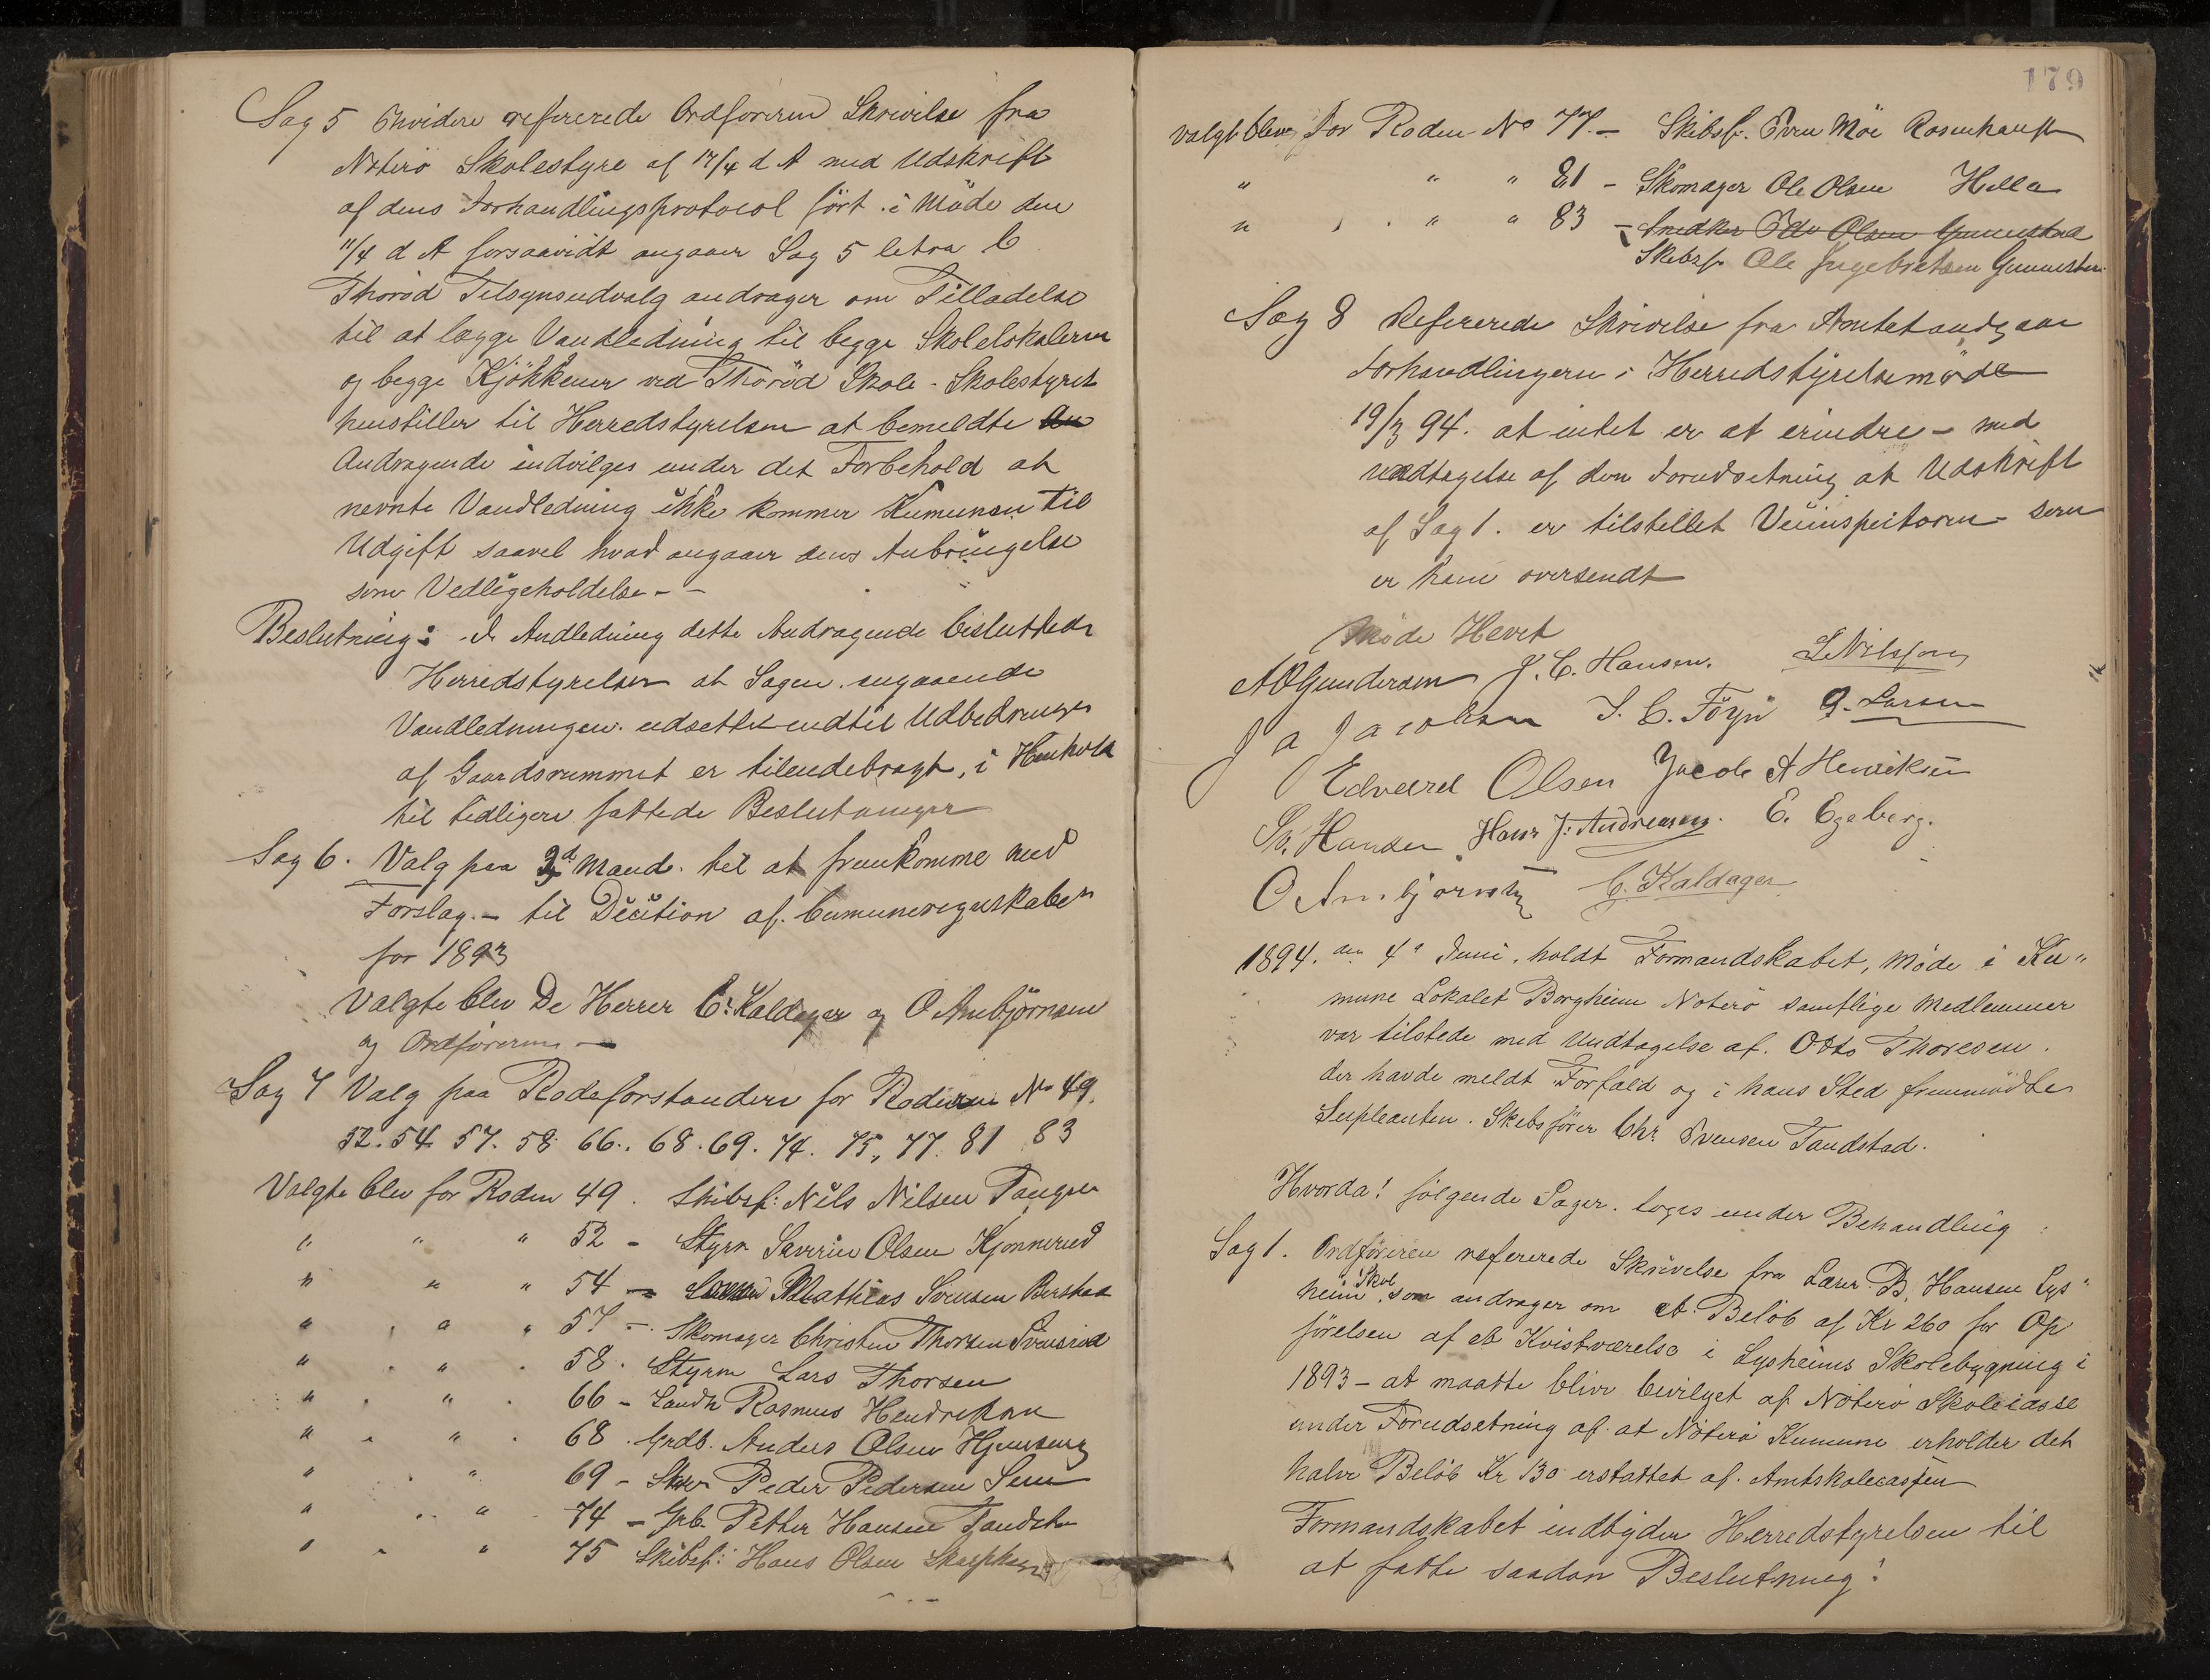 Sag 5 Envidere refererede Ordføreren Skrivelse fra
Nøterø Skolestyre af 17/4 d A med Udskrift
af dens Forhandlingsprotocol ført i Møde den
11/4 d A forsaavidt angaaer Sag 5 letra C
Thorød Tilsynsudvalg andrager om Tilladelse
til at lægge Vandledning til begge Skolelokalerne
og begge Kjøkkener ved Thorød Skole - Skolestyret
henstiller til Herredstyrelsen at bemeldte An
Andragende indvilges under det Forbehold at
nevnte Vandledning ikke kommer Kumunen til
Udgift saavel hvad angaaer dens Anbringelse
som Vedligeholdelse - -
Beslutning: I Andledning dette Andragende besluttede
Herredstyrelsen at Sagen angaaende
Vandledningen udsettes indtil Udbedringen
af Gaardsrummet er tilendebragt, i Henhold
til tidligere fattede Beslutninger
Sag 6. Valg paa 3d Mand til at fremkomme med
Forslag - til Decition af Cumuneregnskabet
for 1893
Valgte blev De Herrer C. Kaldager og O Anbjørnsen
og Ordføreren —
Sag 7 Valg paa Rodeforstandere for Roderne No 49.
52. 54. 57. 58. 66. 68. 69. 74. 75, 77. 81 83
Valgte blev for Roden 49. Skibsf: Nils Nilsen Tangen
" " " 52 - Styrm Severin Olsen Kjonnerud
" " " 54 - Mathias Svensen Berstad
" " " 57 - Skomager Christen Thorsen
" " " 58. Styrm Lars Thorsen
" " " 66 - Landh Rasmus Hendriksen
" " " 68. Grdb. Anders Olsen Hjemseng
" " " 69 - Peder Pedersen Sem
" " " 74 - Grb. Petter Hansen Tandsta
" " " 75 Skibsf: Hans Olsen
179
valgt blev for Roden No 77. - Skibsf. Sven Møe
" " " 81 - Skomager Ole Olsen Hella
" " " 83 - Snedker Edv Olsen Gunnestad
Skibsf. Ole Ingebretsen
Sag 8 Refererede Skrivelse fra Amtet angaar
Forhandlingern i Herredstyrelsemøde
19/3 94. at intet er at erindre - med
undtagelse af den Forudsetning at Udskrift
af Sag 1. er tilstellet Veiinspectoren - som
er ham oversendt
Møde Hevet
A O Gundersen J. C. Hansen. L Nilsson
J A Jacobsen I. C. Föyn G. Larsen
Edvard Olsen Jacob A Henriksen
Hansen Hans J. Andreasen. E. Egeberg.
O Anbjørnsen C. Kaldager
1894. den 4de Juni. holdt Formandskabet, Møde i Ku"
mune Lokalet Borgheim Nøterø samtlige Medlemmer
var tilstede med Undtagelse af. Otto Thoresen.
der havde meldt Forfald og i hans Sted fremmødte
Supleanten. Skibsfører Chr. Svensen Tandstad.
Hvorda! følgende Sager. toges under Behandling:
Sag 1. Ordføreren refererede Skrivelse fra Lærer B. Hansen Lys"
heim Skol. som andrager om et Beløb af Kr 260 for Op
førelsen af et Kvistværelse i Lysheims Skolebygning i
1893 - at maatte blive bevilget af Nøterø Skolecasse
under Forudsetning af at Nøterø Kumune erholder det
halve Beløb Kr 130 erstattet af. Amtskolecassen
Formandskabet indbyder Herredstyrelsen til
at fatte saadan Beslutning: